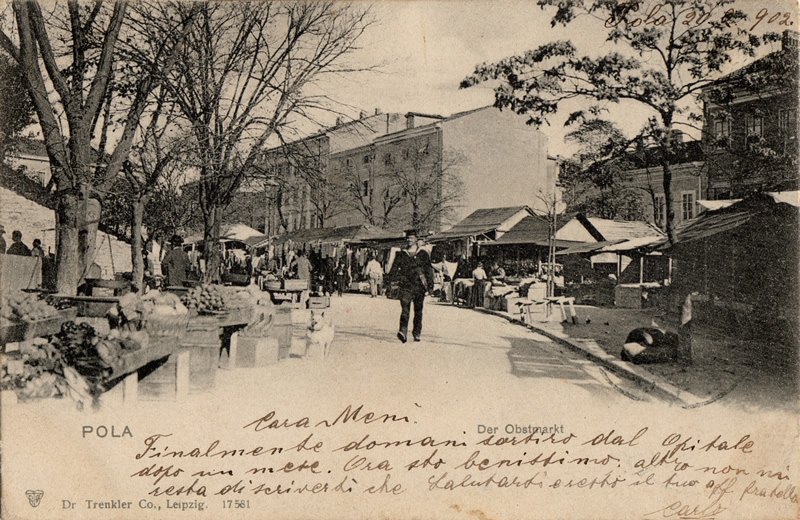 Pola 20 2 902
Cara Meni.
POLA
Der Obstmarkt
Finalmente domani sortiro dal Opitale
dopo un mese. Ora sto benissimo. altro non mi
resta di scriverti che Salutarti e resto il tuo aff fratello
Carlo
Dr Trenkler Co., Leipzig. 17581